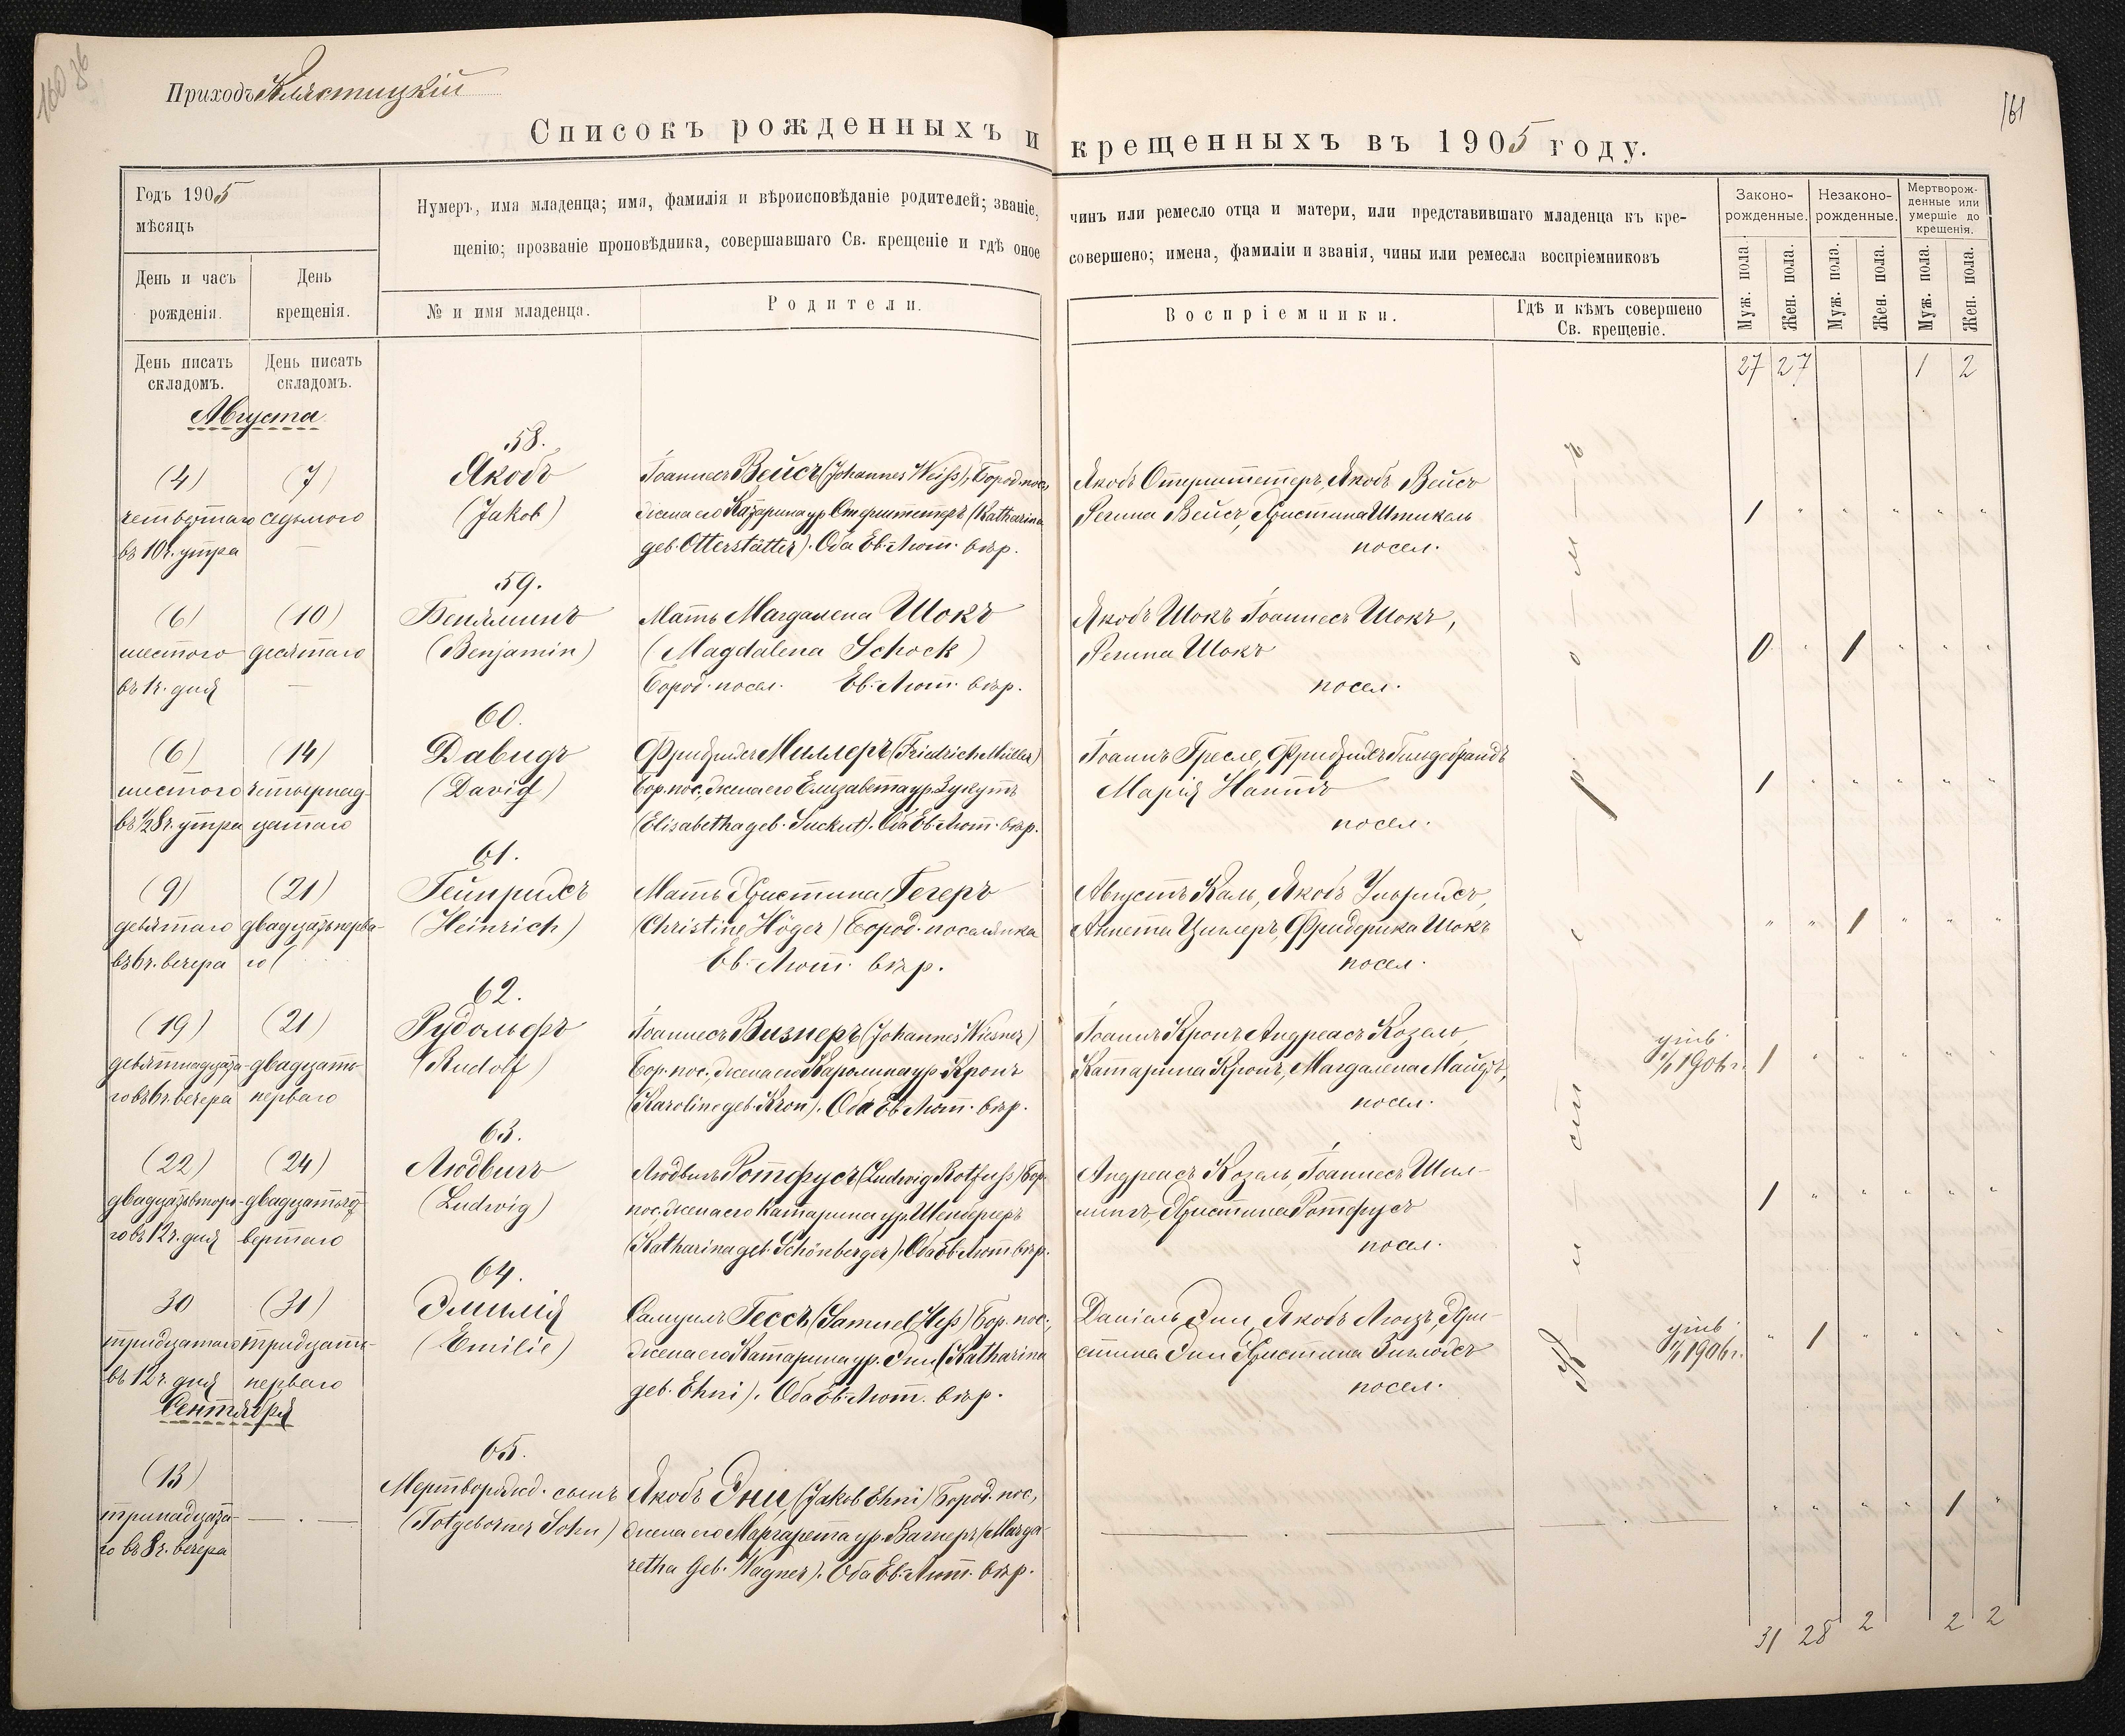 160 об
161
Приходъ Клястицкій
Списокъ рожденныхъ и крещенныхъ въ 1905 году.
Годъ 1905
мѣсяцъ
День и часъ рожденія.
День крещенія.
Нумеръ, имя младенца; имя, фамилія и вѣроисповѣданіе родителей; званіе, чинъ или ремесло отца и матери, или представившаго младенца къ кре-
щенію; прозваніе проповѣдника, совершавшаго Св. крещеніе и гдѣ оное совершено; имена, фамиліи и званія, чины или ремесла воспріемниковъ
№ и имя младенца.
Родители.
Воспріемники.
Гдѣ и кѣмъ совершено
Св. крещеніе.
Законо-
рожденные.
Незаконо-
рожденные.
Мертворож-
денные или
умершіе до
крещенія.
Муж. пола.
Жен. пола.
Муж. пола.
Жен. пола.
Муж. пола.
Жен. пола.
День писать
складомъ.
День писать
складомъ.
27 27 1 2
Августа
58.
(4) (7) Якобъ Іоаннесъ Вейсъ (Johannes Weiß), Бород. пос., Якобъ Оттерштеттеръ, Якобъ Вейсъ
четвертаго седьмого (Jakob) жена его Катарина ур. Оттерштеттеръ (Katharina Регина Вейсъ, Христина Штикель 1
въ 10 ч. утра geb. Otterstätter). Оба Ев. Лют. вѣр. посел.
59.
(6) (10) Беньяминъ Мать Магдалена Шокъ Якобъ Шокъ Іоаннесъ Шокъ,
шестого десятаго (Benjamin) (Magdalena Schock) Регина Шокъ 0 1
въ 1 ч. дня Бород. посел. Ев. Лют. вѣр. посел.
60.
(6) (14) Давидъ Фридрихъ Миллеръ (Friedrich Müller) Іоаннъ Гресле, Фридрихъ Гильдебрандъ
шестого четырнад- (David) Бор. пос., жена его Елизавета ур. Зукутъ Марія 1
въ ½8 ч. утра цатаго (Elisabetha geb. Suckut). Оба Ев. Лют. вѣр. посел.
61.
(9) (21) Гейнрихъ Мать Христина Гегеръ Августъ Каль, Якобъ Ульрихъ,
девятаго двадцать перва- (Heinrich) (Christine Höger) Бород. поселянка Аннета Циглеръ, Фридерика Шокъ 1
въ 6 ч. вечера го Ев. Лют. вѣр. посел.
62.
(19) (21) Рудольфъ Іоаннесъ Визнеръ (Johannes Wiesner) Іоаннъ Кронъ, Андреасъ Козель,
девятнадцата- двадцать (Rudolf) Бор. пос., жена его Каролина ур. Кронъ Катарина Кронъ, Магдалена 1906 г. 1
го въ 6 ч. вечера перваго (Karoline geb. Kron). Оба Ев. Лют. вѣр. посел.
63.
(22) (24) Людвигъ Людвигъ Ротфусъ (Ludwig Rotfuß) Бор. Андреасъ Козель, Іоаннесъ Шил-
двадцать второ- двадцать чет- (Ludwig) пос., жена его Катарина ур. Шенбергеръ лингъ, Христина Ротфусъ 1
го въ 12 ч. дня вертаго (Katharina geb. Schönberger). Оба Ев. Лют. вѣр. посел.
64.
30 (31) Эмилія Самуилъ Гессъ (Samuel Heß) Бор. пос., Даніель Эни, Якобъ Люцъ, Хри-
тридцатаго тридцать (Emilie) жена его Катарина ур. Эни (Katharina стина Эни, Христина 1906 г. 1
въ 12 ч. дня перваго geb. Ehni). Оба Ев. Лют. вѣр. посел.
Сентября
65.
(13) Мертворожд. сынъ Якобъ Эни, (Jakob Ehni) Бород. пос.,
тринадцата- (Totgeborner Sohn) жена его Маргарета ур. Вагнеръ (Marga- 1
го въ 8 ч. вечера retha geb. Wagner). Оба Ев. Лют. вѣр.
31 28 2 2 2